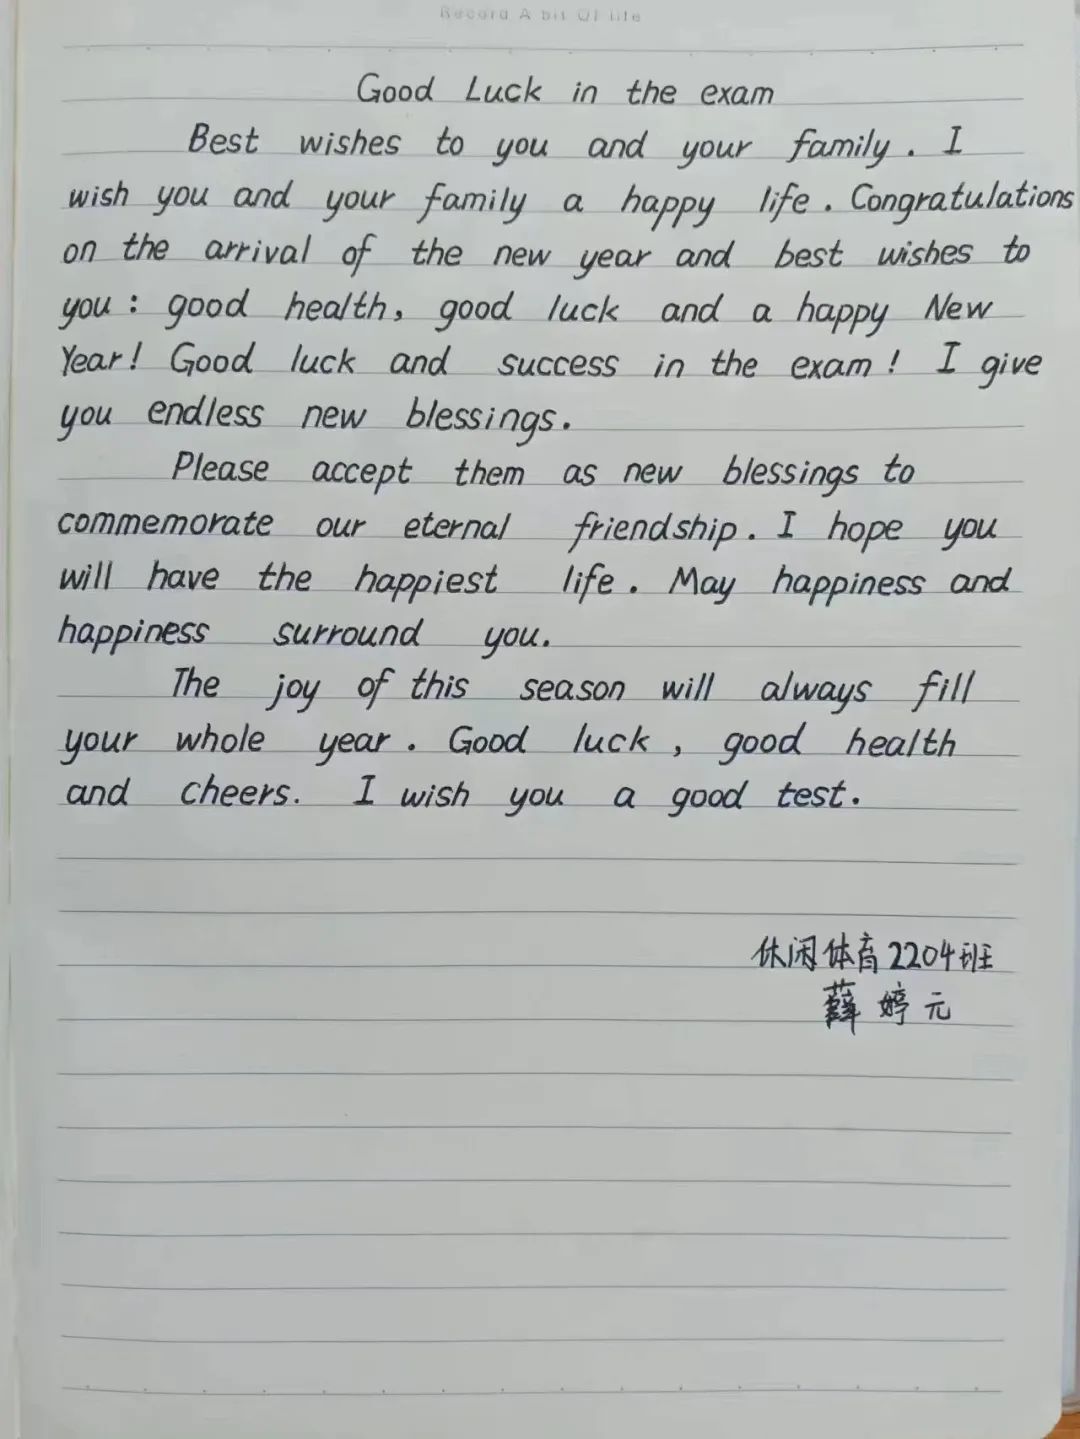 Record A bit Of Life
Good Luck in the exam
Best wishes to you and your family. I
wish you and your family a happy life. Congratulations
on the arrival of the new year and best wishes to
you: good health, good luck and a happy New
Year! Good luck and success in the exam! I give
you endless new blessings.
Please accept them as new blessings to
commemorate our eternal friendship. I hope you
will have the happiest life. May happiness and
happiness surround you.
The joy of this season will always fill
your whole year. Good luck, good health
and cheers. I wish you a good test.
休闲体育2204班
薛婷元